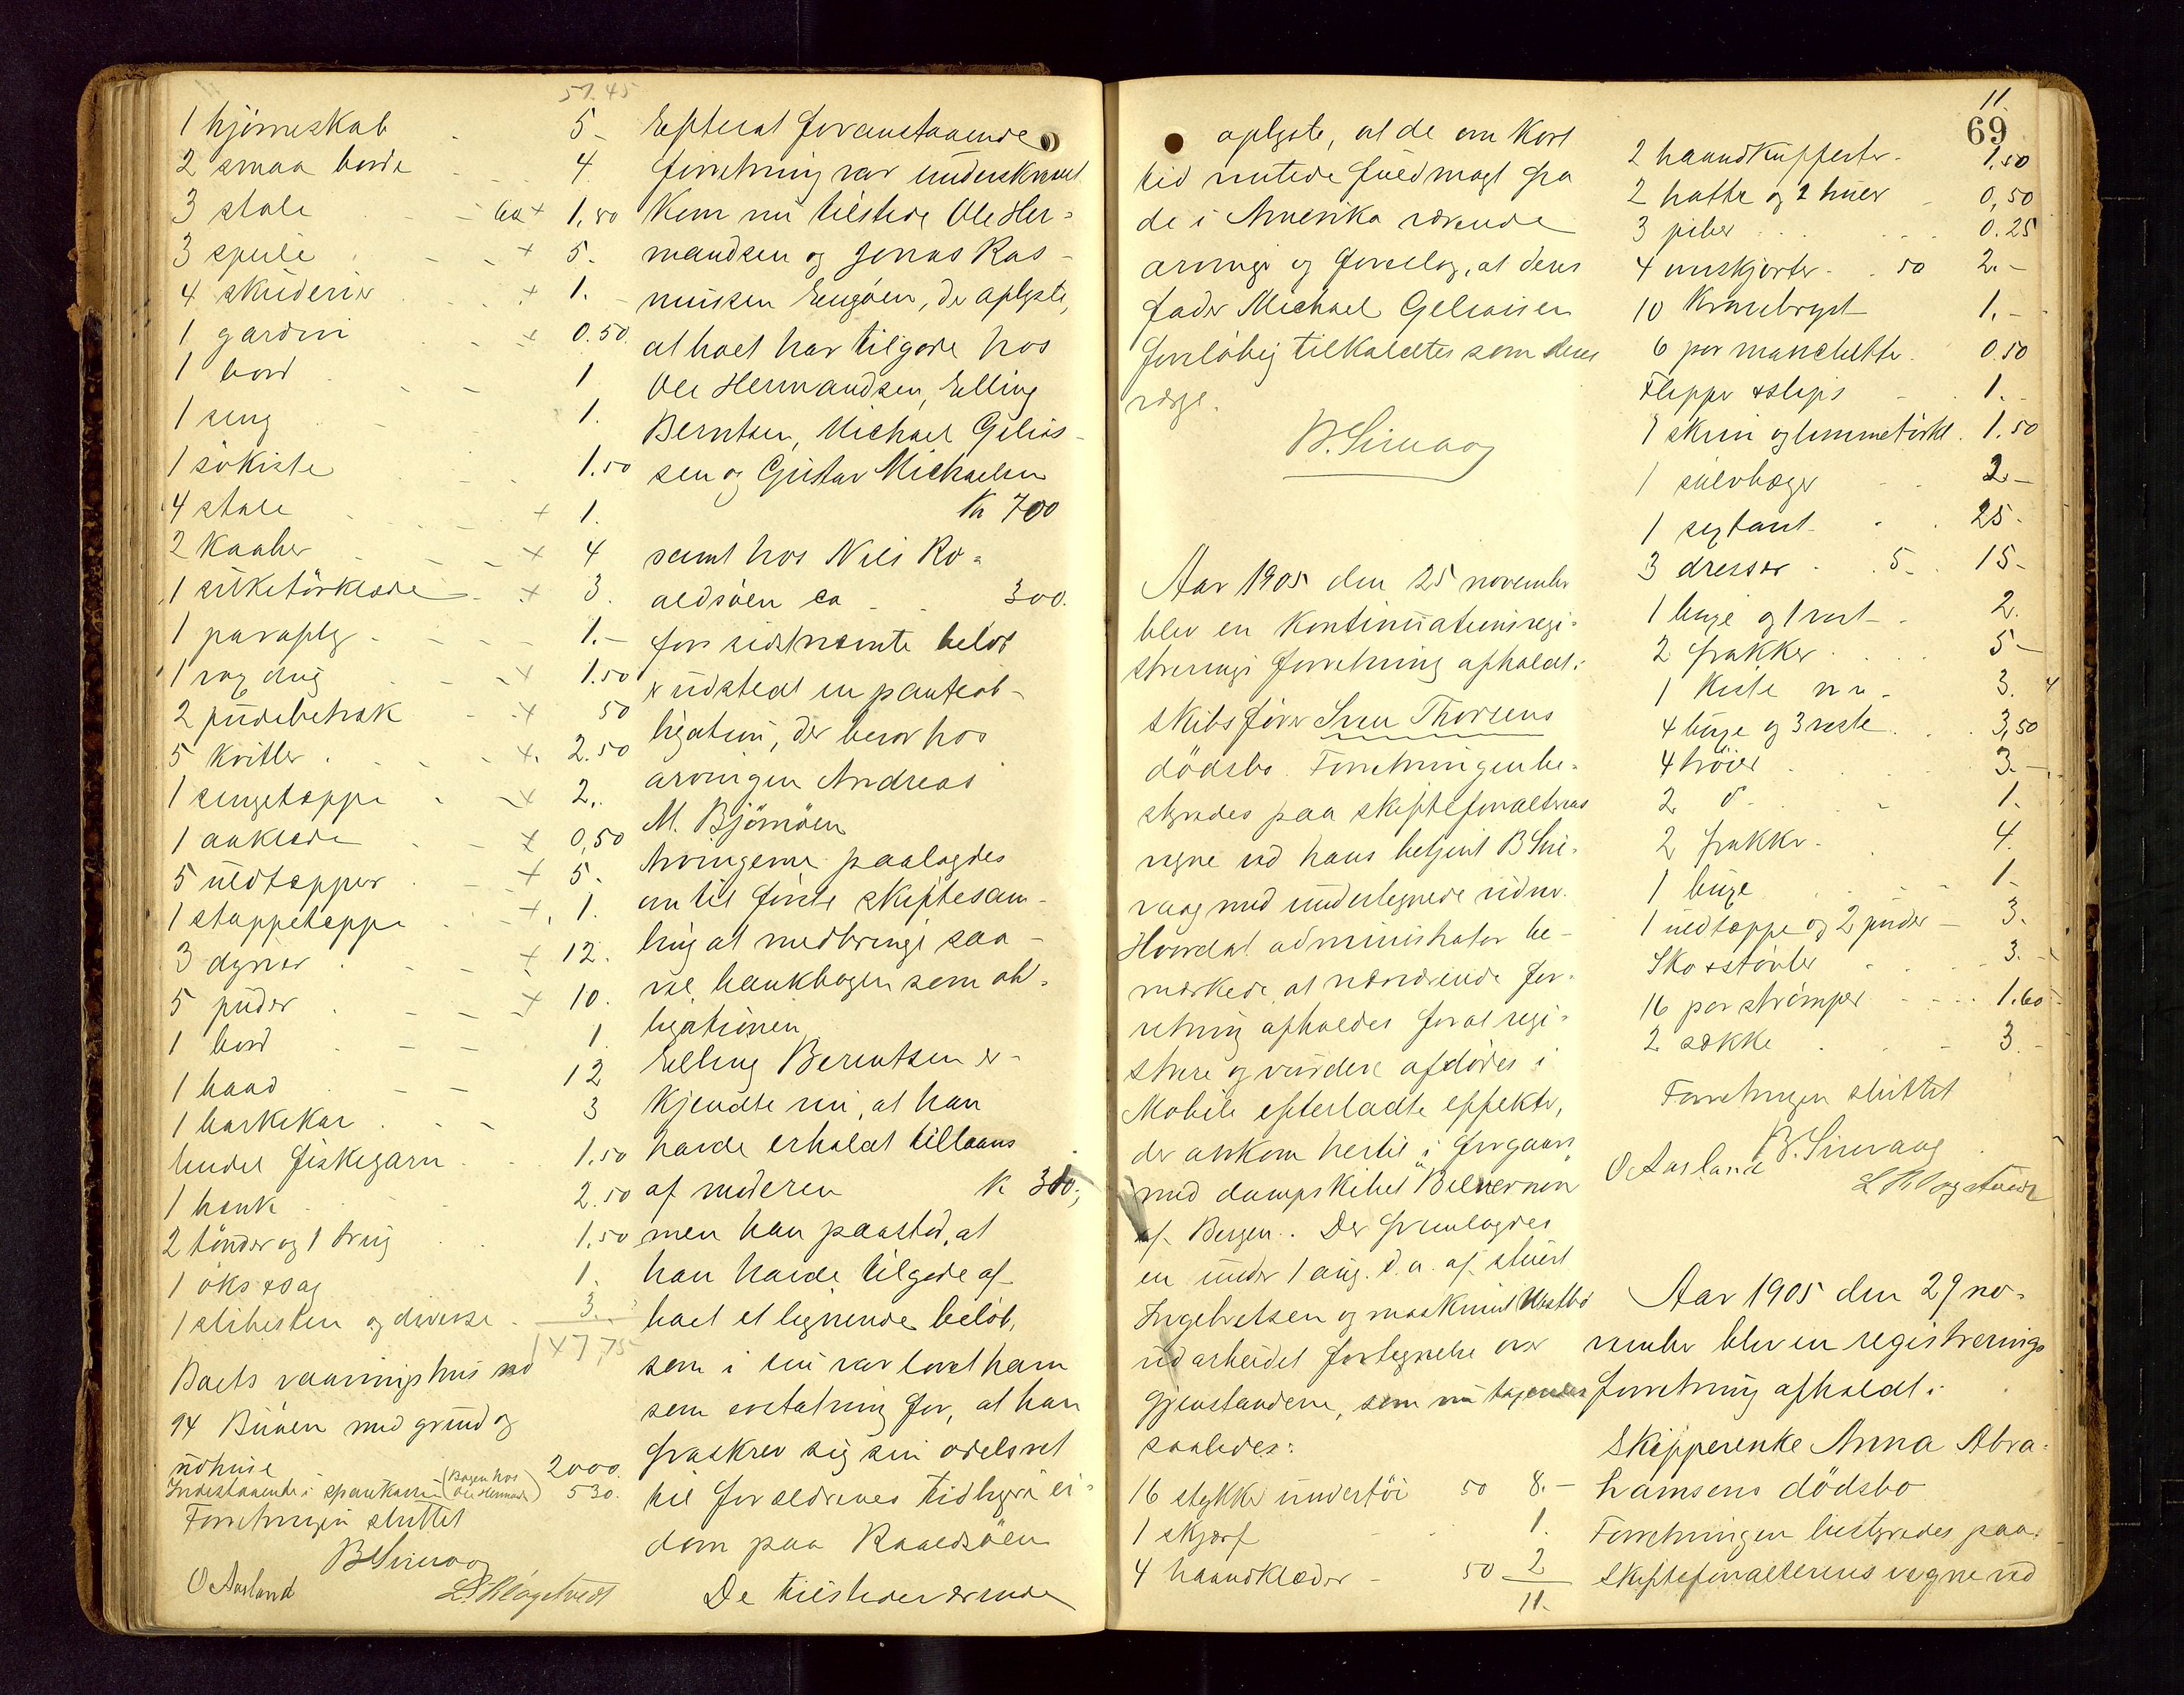 51.45
1 hjörneskab - 5-
2 smaa borde - - 4
3 stole - - 60 + 1,80
3 speile - - + 5.
4 skilderier - + 1.
1 gardin - - + 0.50
1 bord - - 1
1 seng 1.
1 sökiste 1.50
4 stole - - - + 1.
2 Kaaber - - + 4
1 silketörklæde - + 3.
1 paraply - - - - 1.-
1 voxdug - - + 1.50
2 pudebetræk - + 50
5 Kvitler - - - + 2.50
1 sengetæppe - - + 2.
1 aaklæde - - + 0,50
5 uldtæpper - - + 5.
1 stoppetæppe - + 1.
3 dyner - - + 12.
5 puder - - - + 10.
1 bord - - 1
1 baad - - 12
1 barkekar - - 3
Endel fiskegarn - 1.50
1 bænk 2.50
2 tönder og 1 trug 1.50
1 öks & sag 1.
1 slibesten og diverse - 3.-
147,75
Boets vaaningshus no
94 Buöen med grund og
udhuse 2000.
Indestaaende i sparekassen (Bogen hos Ole Hermands) 530.
Forretningen sluttet
B Sirevaag
O Aasland L. Rlagstvedt
Efterat foranstaaende
forretning var underskrevet
Kom nu tilstede Ole Her=
mandsen og Jonas Ras-
mussen Engöen, de oplyste,
at boet har tilgode hos
Ole Hermandsen, Elling
Berntsen, Michael Gelius-
sen og Gustav Michaelsen
Kr 700
samt hos Nils Ro=
aldsöen ca - - 300.
for sidstnævnte belöb
er udstedt en panteob-
ligation, der beror hos
arvingen Andreas
M. Björnöen
Arvingerne paalagdes
om til förste skiftesam-
ling at medbringe saa-
vel bankbogen som ob-
ligationen
Elling Berentsen er-
Kjendte nu, at han
havde erholdt tillaans
af moderen Kr 300;
men han paastod, at
han havde tilgode af
boet et lignende belöb,
som i sin var lovet ham
som erstatning for, at han
fraskrev sig sin odelsret
til forældrenes tidligere ei-
dom paa Roaldsöen
De tilstedeværende
11
69
oplyste, at de om Kort
tid ventede fuldmagt fra
de i Amerika værende
arvinge og foreslog, at deres
fader Michael Geliusen
forelöbig tilkaldtes som deres
værge.
B. Sirevaag
Aar 1905 den 25 november
blev en Kontinuationsregi-
strerings forretning afholdt i
skibsförer Sven Thorsens
dödsbo. Forretningen be-
styredes paa skifteforvalterens
vegne ved hans betjent B Sire-
vaag med undertegnede vidner.
Hvorda administrator be-
mærkede, at nærværende for-
retning afholdes for at regi-
strere og vurdere afdödes i
Mobile efterladte effekter,
der ankom hertil i forgaars
med dampskibet "Belvernon"
af Bergen. Der fremlagdes
en under 1 aug. d.a. af stuert
Ingebretsen og maskinist Westbö
udarbeidet fortegnelse over
gjenstandene, som nu toges
saaledes:
16 stykker undertöi 50 8.-
1 skjærf - - 1.
4 haandklæder - 50 - 2
11.
2 haandkufferter - 1,50
2 hatte og 2 huer - 0,50
3 piber - - 0.25
4 uldskjorter - 50 2.-
10 Kravebryst 1.-
6 par manchetter. 0.50
Flipper & slips - 1.-
1 skrin og lommetörkl. 1.50
1 sölvbæger - - 2.-
1 sextant - - 25.
3 dresser - 5. 15-
1 buxe og 1 vest - 2.
2 frakker - - 5-
1 Kiste - 3. 4
4 buxe og 3 veste - 3,50
4 tröier - - 3.-
2 do - - 1.
2 frakker - 4.
1 buxe - - 1-
1 uldtæppe og 2 puder - 3.
Sko & stövler - - 3.
16 par strömper - - 1.60
2 sække - - 3.-
Forretningen sluttet
B. Sirevaag
O Aasland
Aar 1905 den 29 no-
vember blev en registrerings
forretning afholdt i
Skipperenke Anna Abra-
hamsens dödsbo
Forretningen bestyredes paa
skifteforvalterens vegne ved